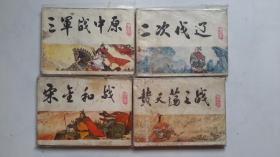 三軍战中原
二次伐辽
宋金和战
黄天荡之战